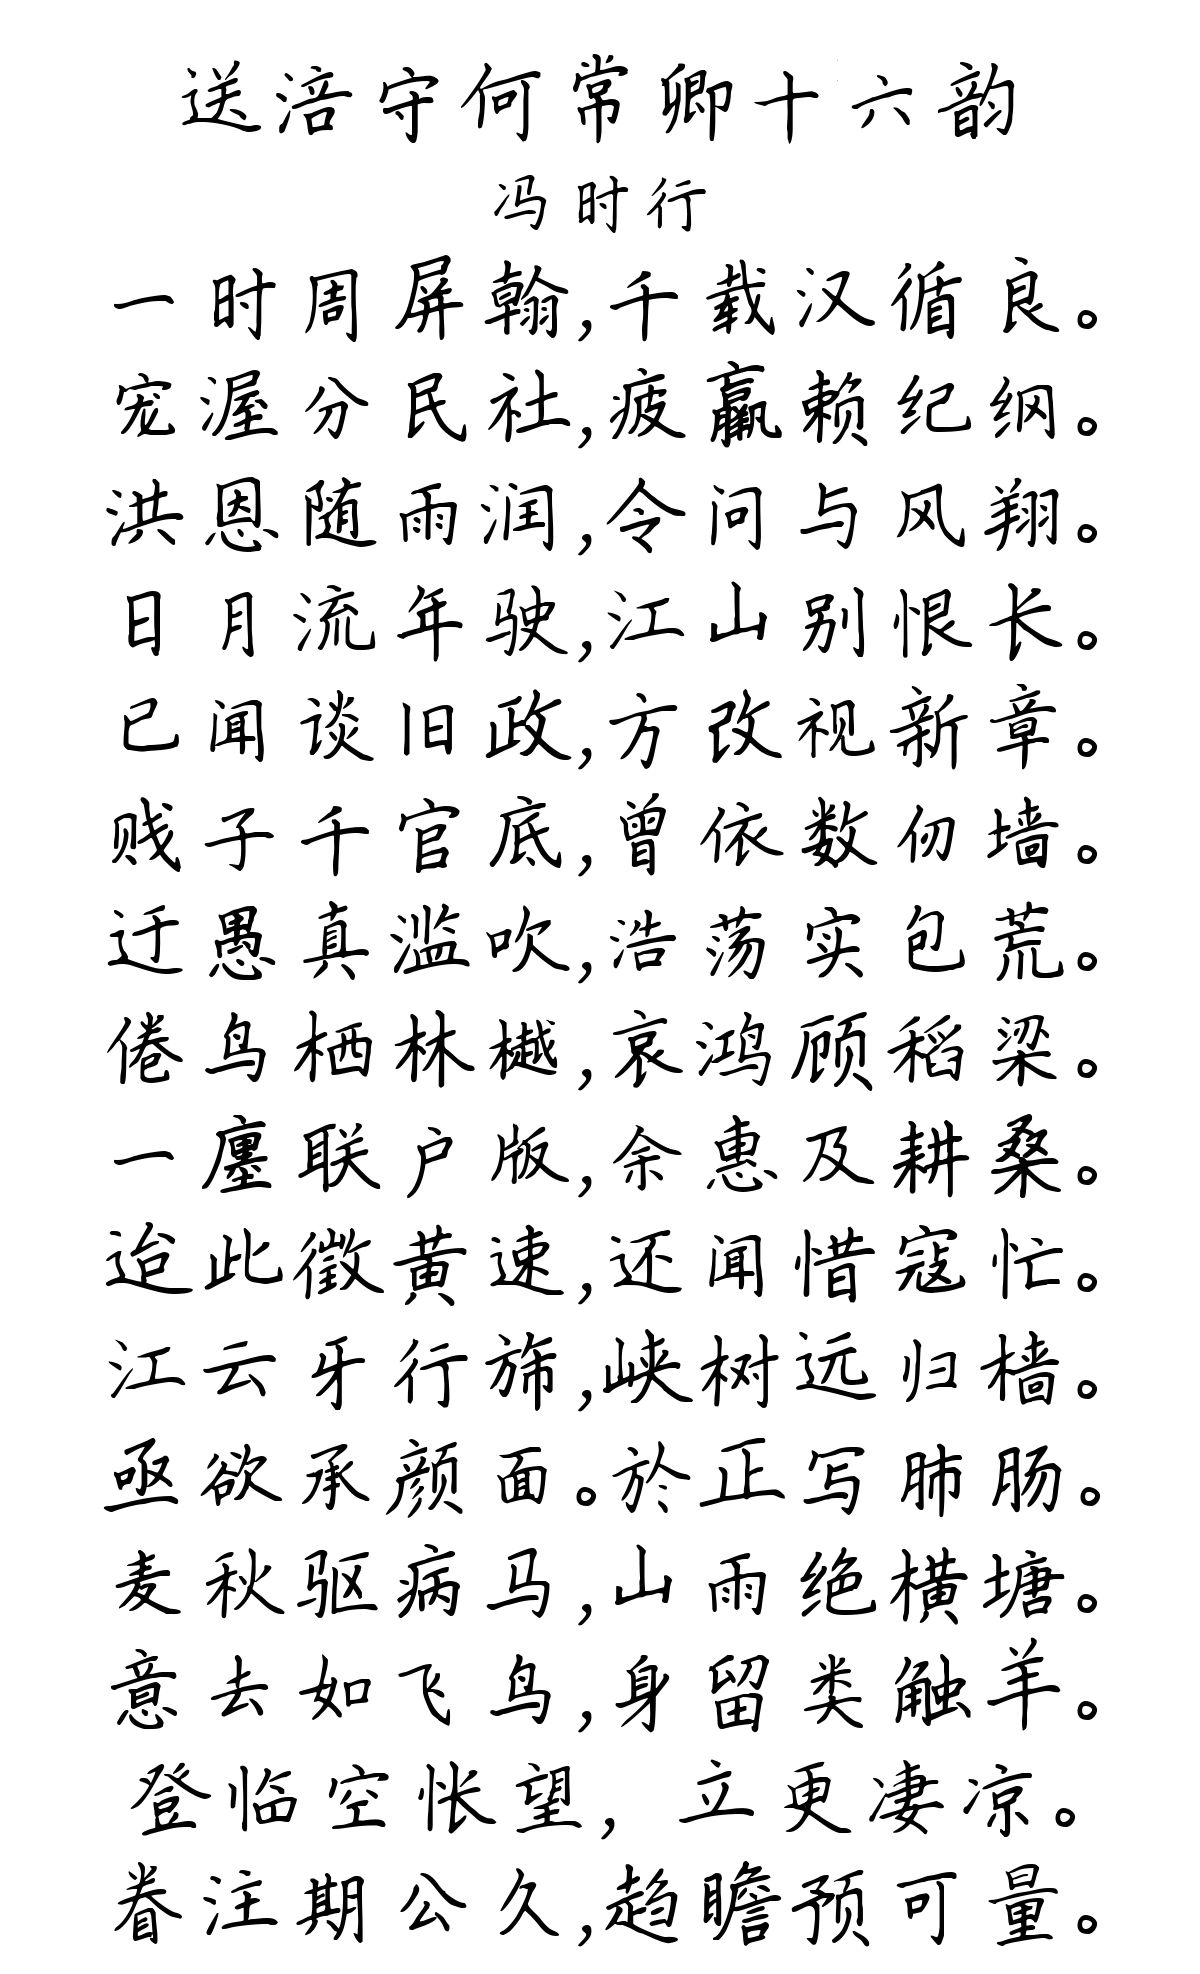 送涪守何常卿十六韵
冯时行
一时周屏翰,千载汉循良。
宠渥分民社,疲羸赖纪纲。
洪恩随雨润,令问与风翔。
日月流年驶,江山别恨长。
已闻谈旧政,方改视新章。
贱子千官底,曾依数仞墙。
迂愚真滥吹,浩荡实包荒。
倦鸟栖林樾,哀鸿顾稻梁。
一廛联户版,余惠及耕桑。
迨此徵黄速,还闻惜寇忙。
江云牙行旆,峡树远归樯。
亟欲承颜面。於正写肺肠。
麦秋驱病马,山雨绝横塘。
意去如飞鸟,身留类触羊。
登临空怅望,立更凄凉。
眷注期公久,趋瞻预可量。